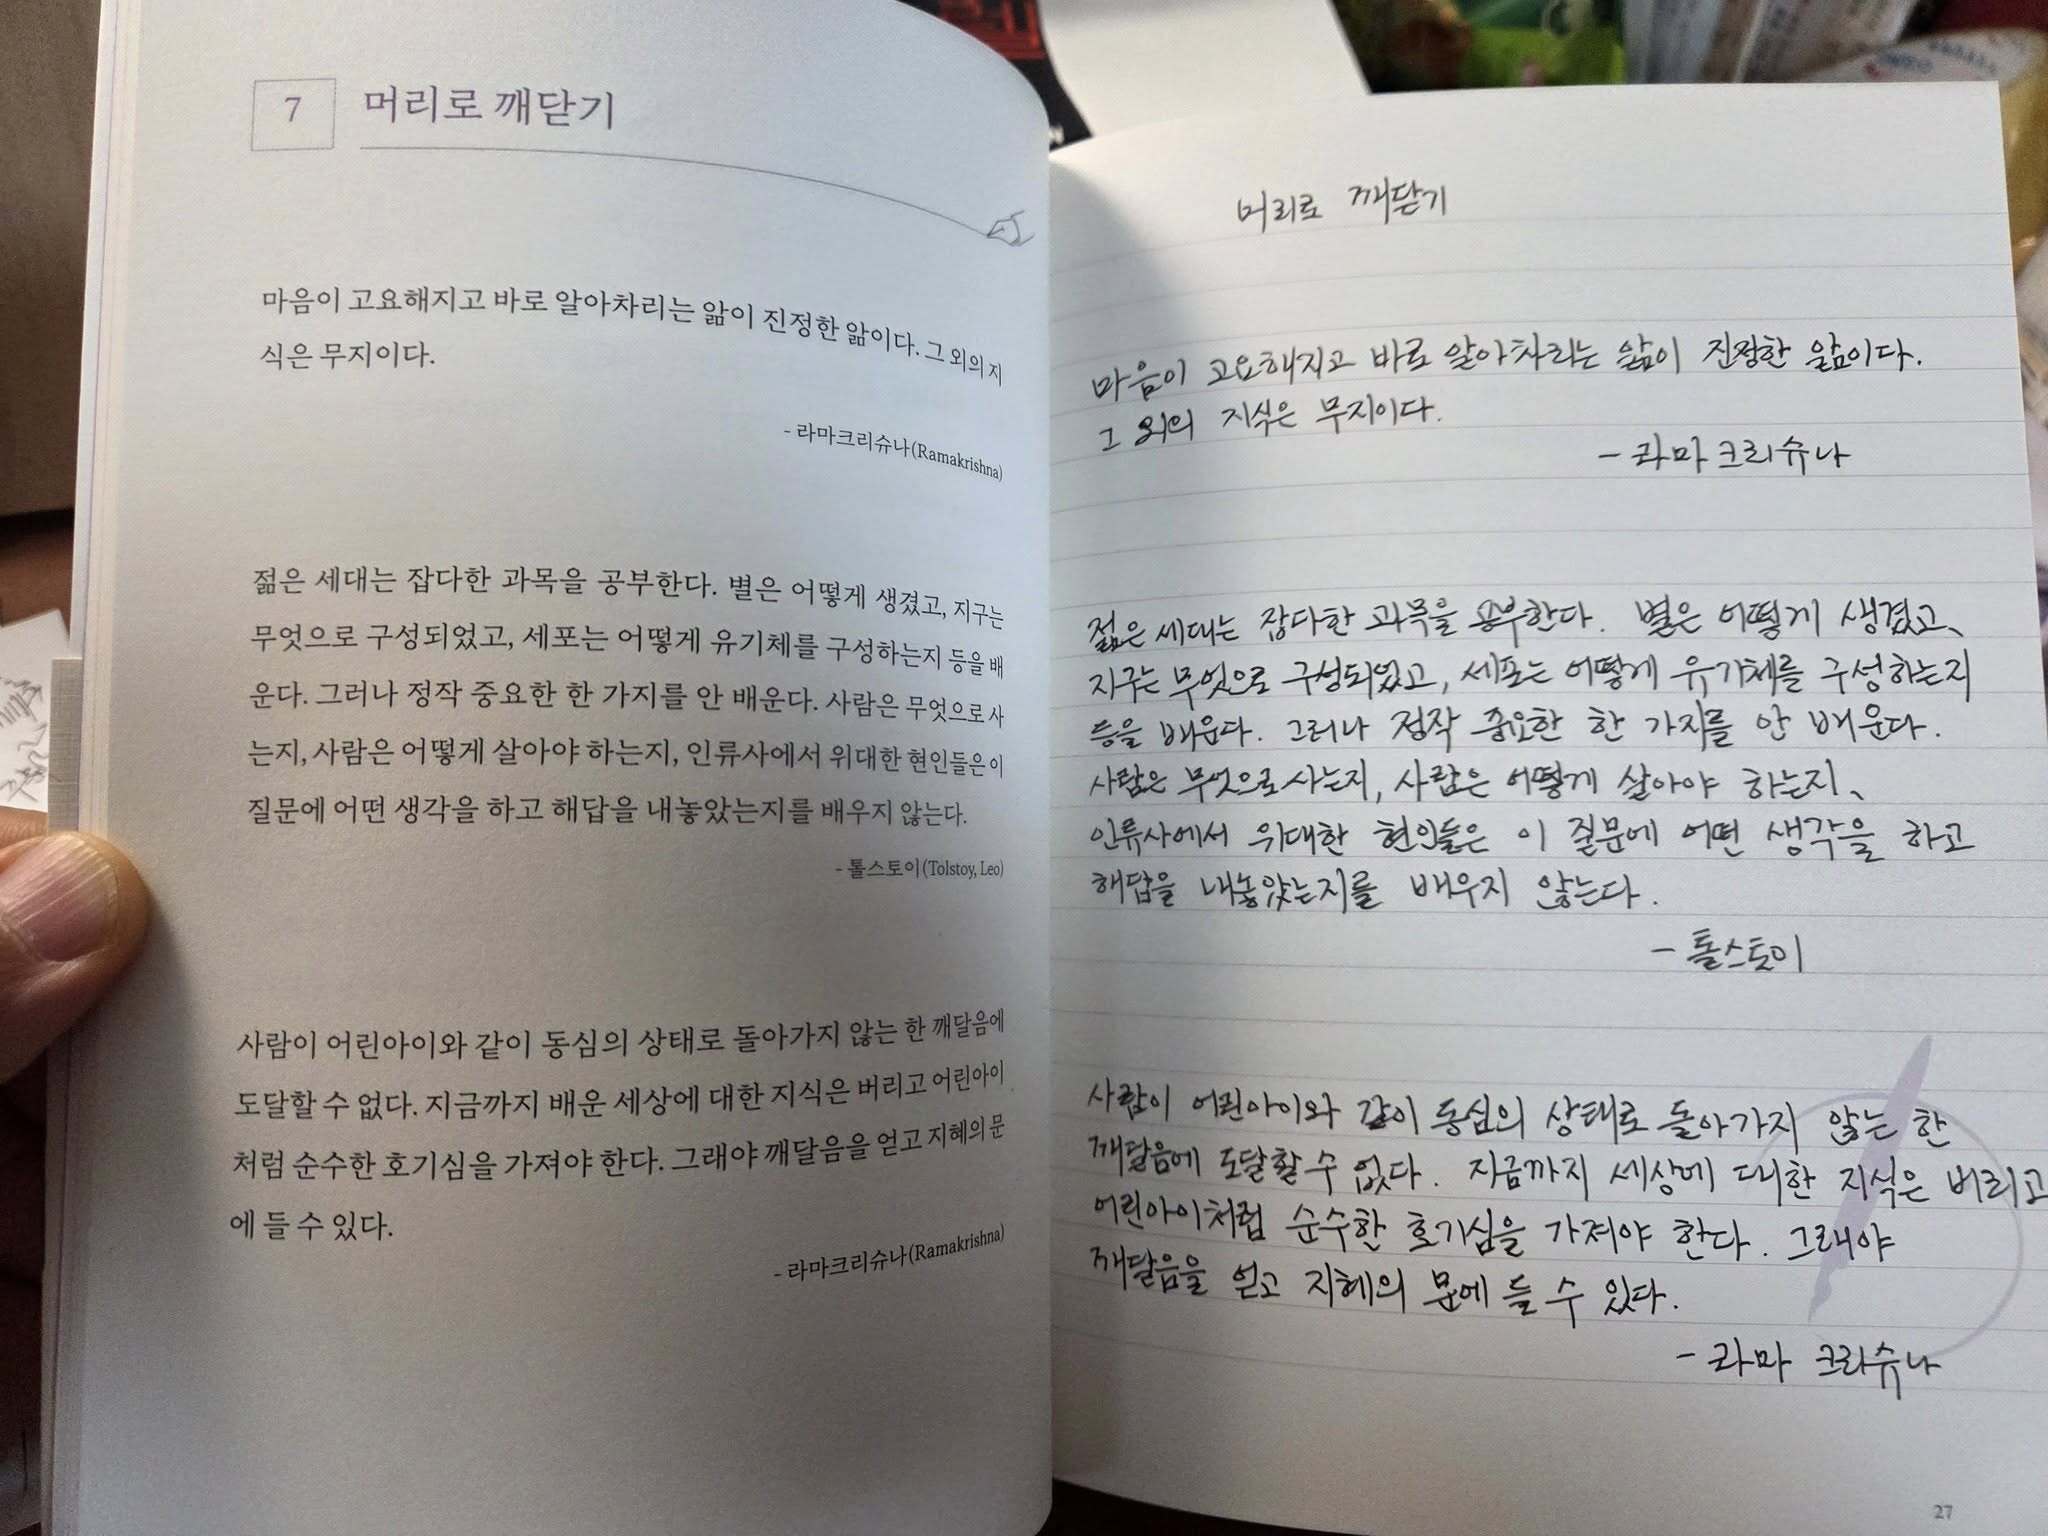 7 머리로 깨닫기
마음이 고요해지고 바로 알아차리는 앎이 진정한 앎이다. 그 외의 지
식은 무지이다.
- 라마크리슈나(Ramakrishna)
젊은 세대는 잡다한 과목을 공부한다. 별은 어떻게 생겼고, 지구는
무엇으로 구성되었고, 세포는 어떻게 유기체를 구성하는지 등을 배
운다. 그러나 정작 중요한 한 가지를 안 배운다. 사람은 무엇으로 사
는지, 사람은 어떻게 살아야 하는지, 인류사에서 위대한 현인들은 이
질문에 어떤 생각을 하고 해답을 내놓았는지를 배우지 않는다.
- 톨스토이(Tolstoy, Leo)
사람이 어린아이와 같이 동심의 상태로 돌아가지 않는 한 깨달음에
도달할 수 없다. 지금까지 배운 세상에 대한 지식은 버리고 어린아이
처럼 순수한 호기심을 가져야 한다. 그래야 깨달음을 얻고 지혜의 문
에 들 수 있다.
- 라마크리슈나(Ramakrishna)
머리로 깨닫기
마음이 고요해지고 바로 알아차리는 앎이 진정한 앎이다.
그 외의 지식은 무지이다.
- 라마크리슈나
젊은 세대는 잡다한 과목을 공부한다. 별은 어떻게 생겼고,
지구는 무엇으로 구성되었고, 세포는 어떻게 유기체를 구성하는지
등을 배운다. 그러나 정작 중요한 한 가지를 안 배운다.
사람은 무엇으로 사는지, 사람은 어떻게 살아야 하는지,
인류사에서 위대한 현인들은 이 질문에 어떤 생각을 하고
해답을 내놓았는지를 배우지 않는다.
- 톨스토이
사람이 어린아이와 같이 동심의 상태로 돌아가지 않는 한
깨달음에 도달할 수 없다. 지금까지 세상에 대한 지식은 버리고
어린아이처럼 순수한 호기심을 가져야 한다. 그래야
깨달음을 얻고 지혜의 문에 들 수 있다.
- 라마 크리슈나
27